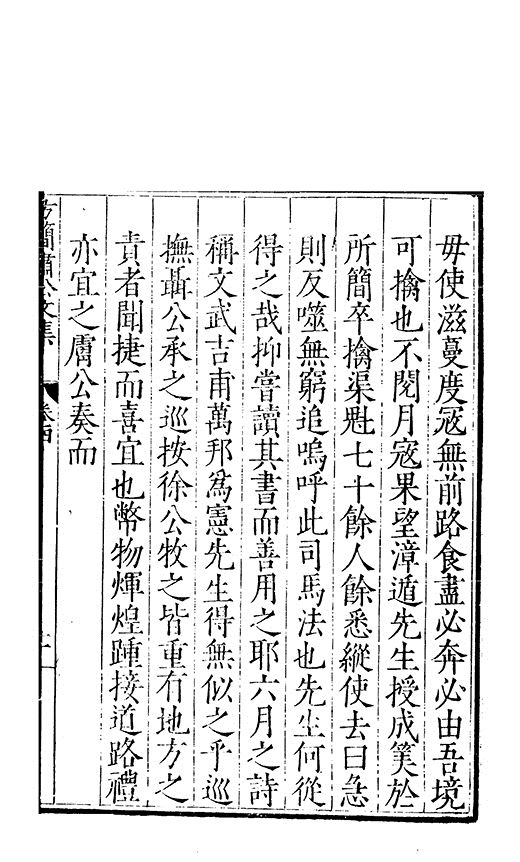 毋使滋蔓度冦無前路食盡必奔必由吾境
可擒也不閱月寇果望漳遁先生授成筭於
所簡卒擒渠魁七十餘人餘悉縱使去曰急
則反噬無窮追嗚呼此司馬法也先生何從
得之哉抑嘗讀其書而善用之耶六月之詩
稱文武吉甫萬邦爲憲先生得無似之乎巡
撫聶公承之巡按徐公牧之皆重有地方之
責者聞捷而喜宜也幣物煇煌踵接道路禮
亦宜之膚公奏而
方簡肅公文集
卷四